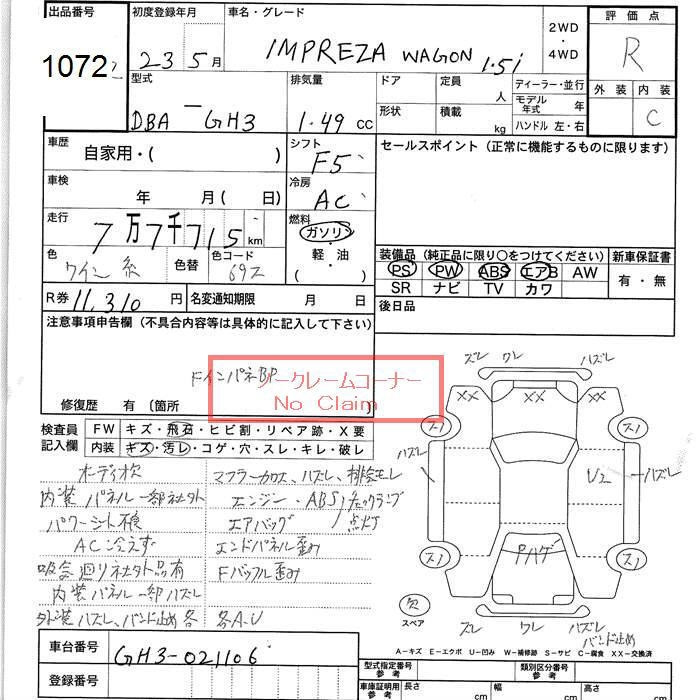 出品番号 初度登録年月 車名・グレード 評価点
1072 23 5月 IMPREZA WAGON 1.5i 2WD・4WD R
型式 排気量 ドア 定員 人 ディーラー・並行 外装 内装
DBA-GH3 1.49 cc 形状 積載 kg モデル年式 年 C
ハンドル 左・右
車歴 自家用・( ) シフト F5 セールスポイント (正常に機能するものに限ります)
車検 年 月( 日) 冷房 AC
走行 7万7千715 km 燃料 ガソリン・軽油・( )
色 ワイン 色替 色コード 69Z
装備品 (純正品に限り○をつけてください) 新車保証書
PS PW ABS エアB AW 有・無
SR ナビ TV カワ
R券 11,310 円 名変通知期限 月 日 後日品
注意事項申告欄 (不具合内容等は具体的に記入して下さい)
FインパネBP
ノークレームコーナー
No Claim
修復歴 有〔箇所
検査員記入欄 FW キズ・飛石・ヒビ割・リペア跡・X要
内装 キズ・汚レ・コゲ・穴・スレ・キレ・破レ
オーディオ欠 マフラーカロス、ハズレ、排気モレ
内装パネル一部社外 エンジン、ABS チェックランプ
パワーシート不良 エアバッグ 点灯
AC冷えず エンドパネル歪み
吸気廻り社外品有 Fバッフル歪み
内装パネル一部ハズレ
外装ハズレ、バンド止め各 各A.U
ズレ ワレ ハズレ
XX XX XX
ハズレ U2 ハズレ
Pハゲ
欠
スペア
ズレ ワレ ハズレ
バンド止め
A-キズ E-エクボ U-凹み W-補修跡 S-サビ C-腐食 XX-交換済
車台番号 GH3-021106
登録番号
型式指定番号 参考 類別区分番号 参考
車庫証明用 参考 長さ cm 幅 cm 高さ cm